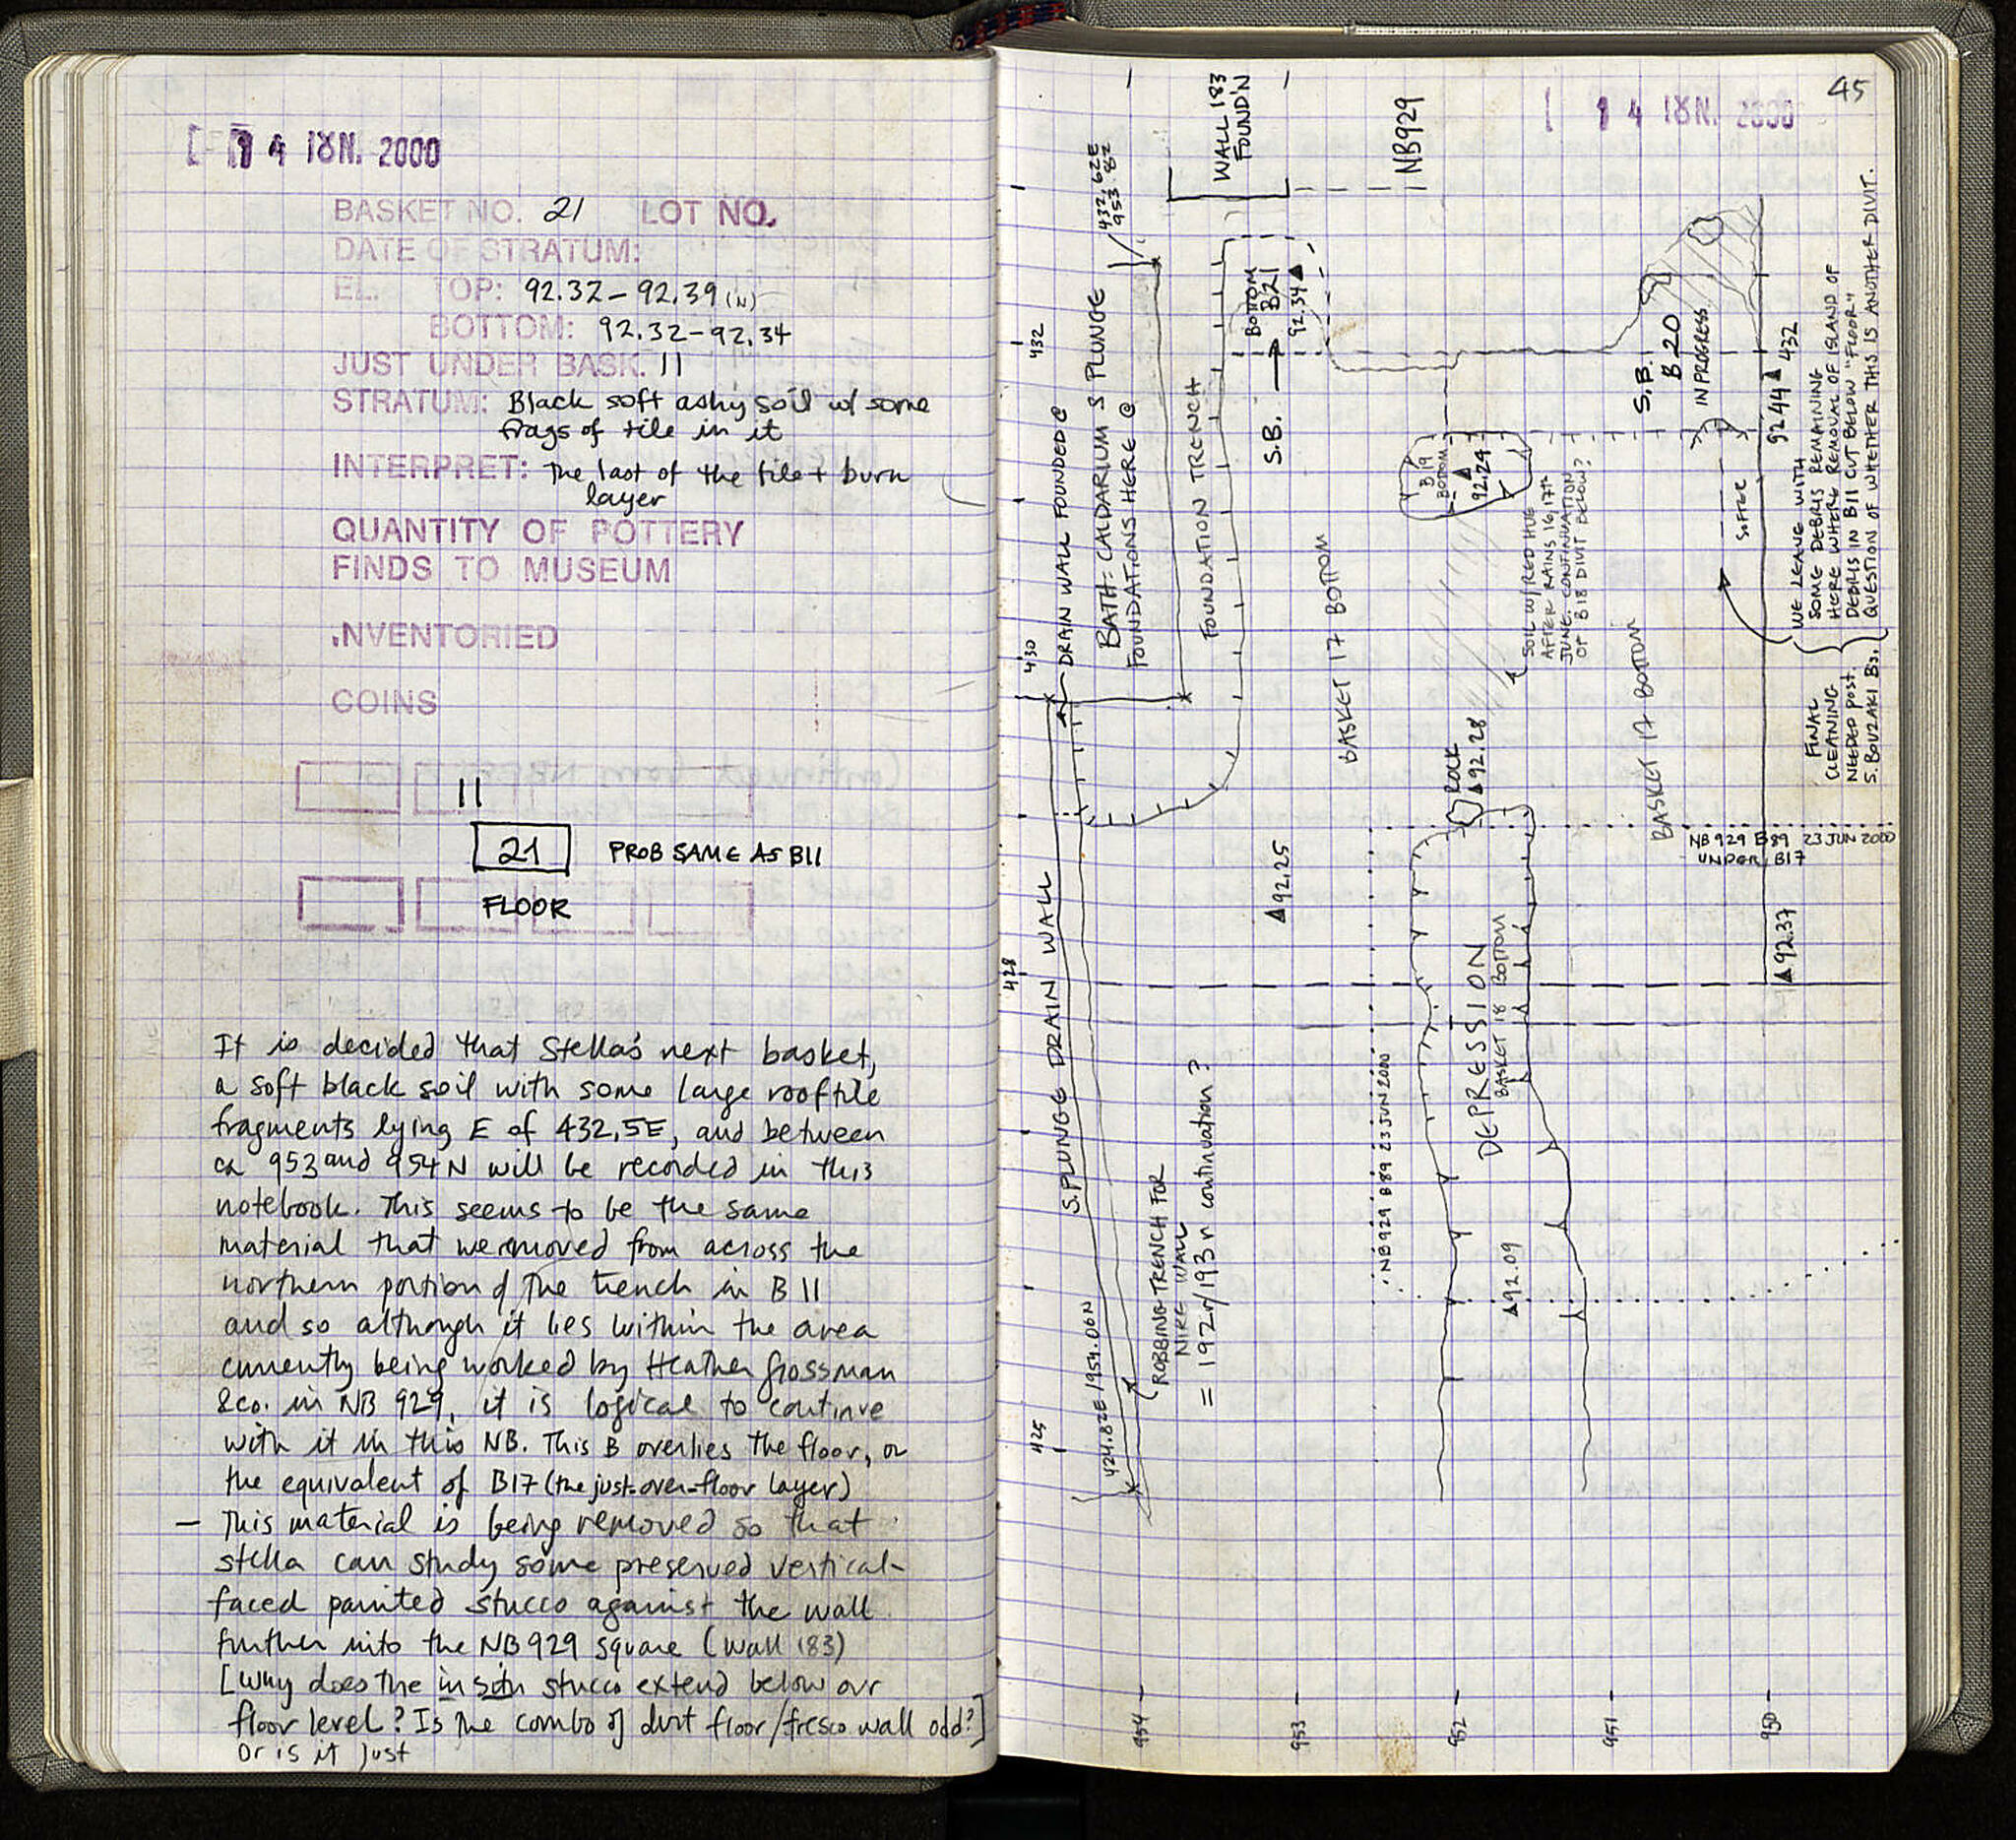 14 IȢN. 2000
BASKET NO. 21 LOT NO.
DATE OF STRATUM:
EL. TOP: 92.32–92.39 (N)
BOTTOM: 92.32–92.34
JUST UNDER BASK. 11
STRATUM: Black soft ashy soil w/ some
frags of tile in it
INTERPRET: The last of the tile + burn
layer
QUANTITY OF POTTERY
FINDS TO MUSEUM
INVENTORIED
COINS
11
21 PROB SAME AS B11
FLOOR
It is decided that Stella's next basket,
a soft black soil with some large rooftile
fragments lying E of 432.5E, and between
ca 953 and 954 N will be recorded in this
notebook. This seems to be the same
material that we removed from across the
northern portion of the trench in B 11
and so although it lies within the area
currently being worked by Heather Grossman
&co. in NB 929, it is logical to continue
with it in this NB. This B overlies the floor, or
the equivalent of B17 (the just-over-floor layer)
— This material is being removed so that
Stella can study some preserved vertical-
faced painted stucco against the wall
further into the NB 929 square (Wall 183)
[Why does the in situ stucco extend below our
floor level? Is the combo of dirt floor/fresco wall odd?]
Or is it just
45
14 IȢN. 2000
425
428
430
432
954
953
952
951
950
424.82E/954.06N
S. PLUNGE DRAIN WALL
DRAIN WALL FOUNDED @
BATH: CALDARIUM S PLUNGE
FOUNDATIONS HERE @
432.62E
953.82
WALL 183
FOUND'N
NB929
FOUNDATION TRENCH
S.B.
BOTTOM
B21
92.34
ROBBING TRENCH FOR
NIKE WALL
= 192r/193r continuation?
92.25
BASKET 17 BOTTOM
NB929 B89 23 JUN 2000
DEPRESSION
BASKET 18 BOTTOM
92.09
ROCK
92.28
B19
BOTTOM
92.24
SOIL W/RED HUE
AFTER RAINS 16, 17th
JUNE. CONTINUATION
OF B18 DIVIT BELOW?
BASKET 17 BOTTOM
S.B.
B 20
IN PROGRESS
SOFTER
NB 929 B89 23 JUN 2000
UNDER B17
92.37
92.44
432
WE LEAVE WITH
SOME DEBRIS REMAINING
HERE WHERE REMOVAL OF ISLAND OF
DEBRIS IN B11 CUT BELOW "FLOOR"
QUESTION OF WHETHER THIS IS ANOTHER DIVIT.
FINAL
CLEANING
NEEDED POST.
S. BOUZAKI Bs.